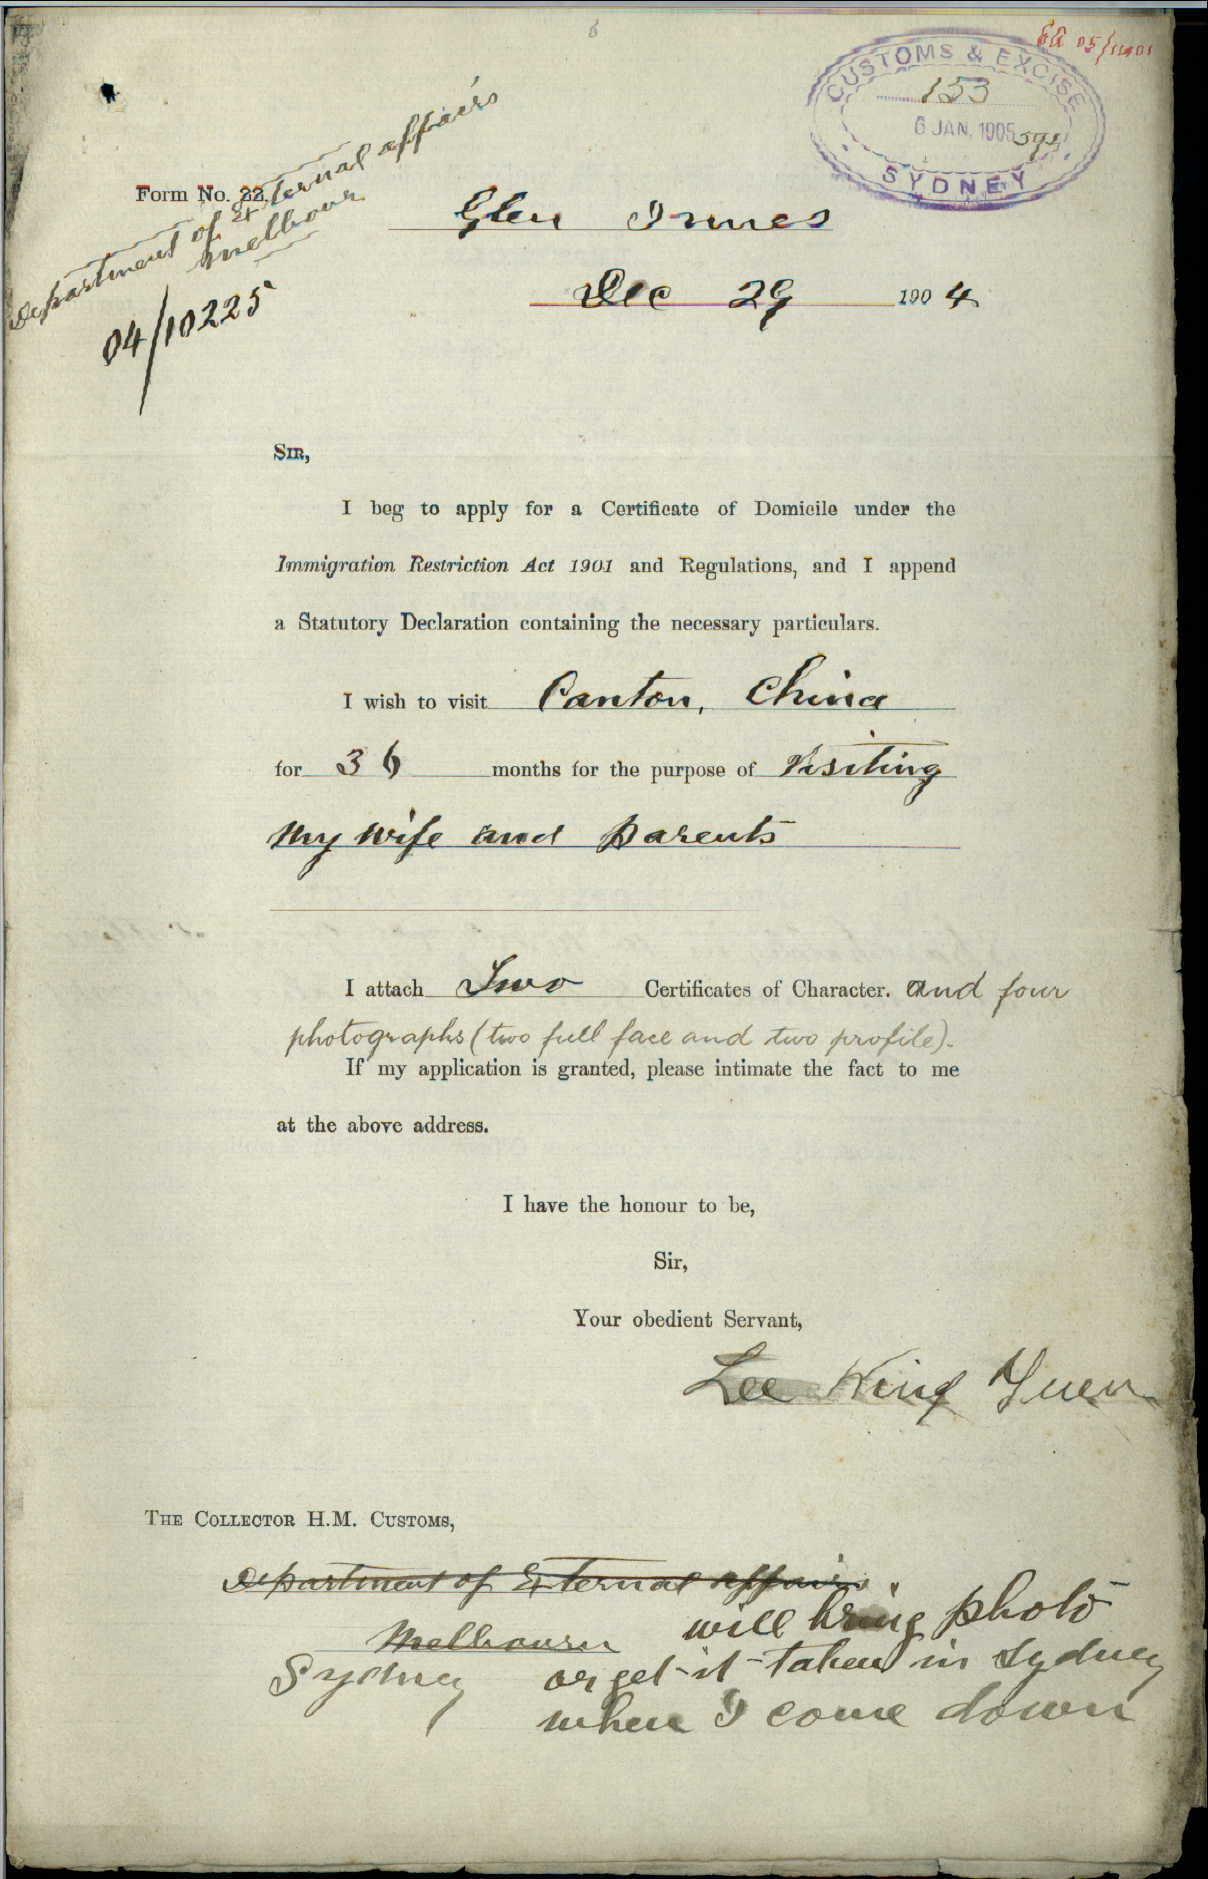 CUSTOMS & EXCISE
153
6 JAN. 1905
SYDNEY
Form No. 22.
Department of External affairs
Melbourn
04/10225
Glen Innes
Dec 29 1904
SIR,
I beg to apply for a Certificate of Domicile under the
Immigration Restriction Act 1901 and Regulations, and I append
a Statutory Declaration containing the necessary particulars.
I wish to visit Canton, China
for 36 months for the purpose of Visiting
My Wife and parents
I attach Two Certificates of Character. and four
photographs (two full face and two profile).
If my application is granted, please intimate the fact to me
at the above address.
I have the honour to be,
Sir,
Your obedient Servant,
Lee Wing Yuen
THE COLLECTOR H.M. CUSTOMS,
Department of External affairs
Melbourn
Sydney
will bring photo
or get it taken in Sydney
when I come down